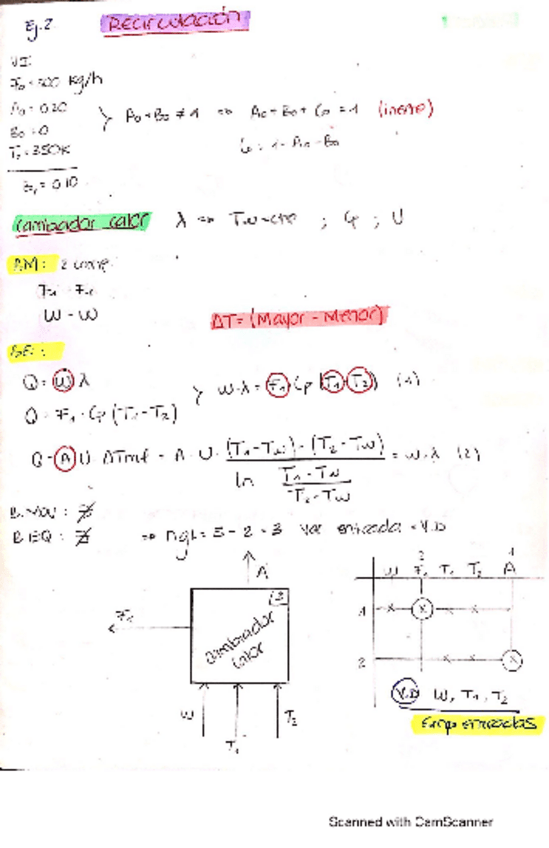 Ej. 2. Recirculación
V.I:
F₀ = 500 kg/h
A₀ = 0.20
B₀ = 0
T₁ = 350 K
A₀ + B₀ ≠ 1 ⇒ A₀ + B₀ + C₀ = 1 (inerte)
C₀ = 1 - A₀ - B₀
B₁ = 0.10
Cambiador calor λ ⇒ Tw = cte ; Cp ; U
B.M: 2 comp.
W - W
ΔT = (Mayor - Menor)
B.E.:
Q = W λ
Q = F₁ · Cp (T₁ - T₂)
W·λ = F₁ Cp (T₁ - T₂) (1)
Q = A U ΔTml = A · U · (T₁ - Tw) - (T₂ - Tw) / ln (T₁ - Tw / T₂ - Tw) = W·λ (2)
B. MOV : ∄
B. EQ : ∄ ⇒ ngl = 5 - 2 = 3 var entrada = V.D
A
3
F₁
Cambiador calor
W T₁ T₂
2 1
W F₁ T₁ T₂ A
1 x x x x
2 x x x
V.D W, T₁, T₂
Comp entradas
Scanned with CamScanner